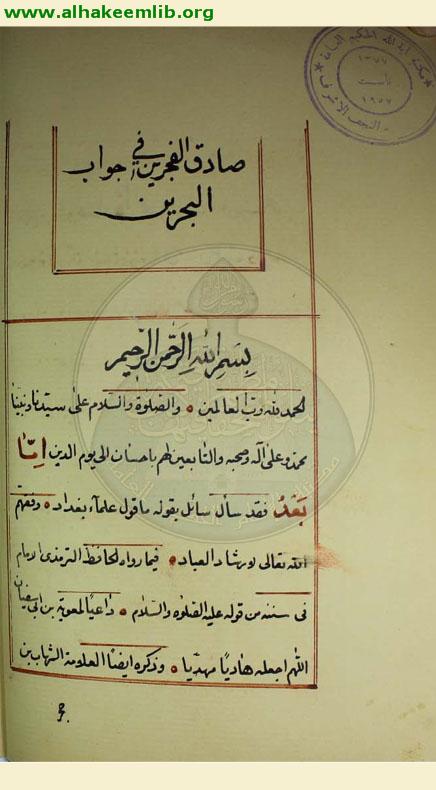 www.alhakeemlib.org
مكتبة آية الله الحكيم العامة
١٣٧٧
تأسست
١٩٥٧
النجف الاشرف
صادق الفجرين في جواب
البحرين
بِسمِ اللهِ الرَّحمنِ الرَّحيمِ
الحمد لله رب العالمين ۰ والصلوة والسلام على سيدنا ونبينا
محمد وعلى آله وصحبه والتابعين لهم باحسان الى يوم الدين امّا
بَعدُ فقد سأل سائل بقوله ما قول علماء بغداد ۰ وفقهم
الله تعالى لارشاد العباد ۰ فيما رواه الحافظ الترمذي الامام
في سننه من قوله عليه الصلوة والسلام ۰ داعياً لمعوية بن ابي سفيان
اللهم اجعله هادياً مهديا ۰ وذكره ايضاً العلومة الشهاب بن